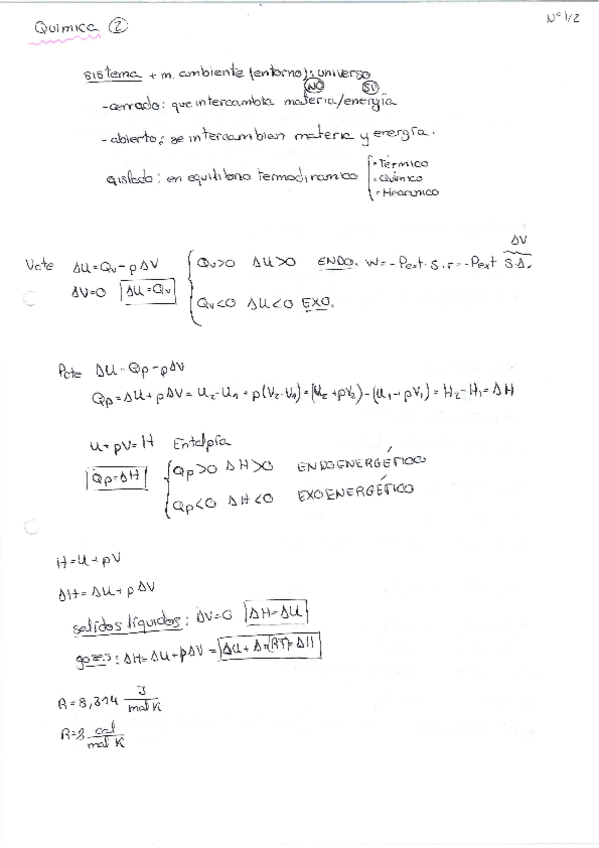 Química ②
Nº 1/2
sistema + m. ambiente (entorno): universo
NO SI
-cerrado: que intercambia materia/energía
-abierto: se intercambian materia y energía.
aislado: en equilibrio termodinámico
• Térmico
• Químico
• Mecánico
Vcte ΔU=Qv-pΔV
Qv>0 ΔU>0 ENDO. W=-Pext·S·r=-Pext S.Δ.
ΔV
ΔV=0 ΔU=Qv
Qv<0 ΔU<0 EXO.
Pcte ΔU=Qp-pΔV
Qp=ΔU+pΔV=U2-U1+p(V2-V1)=(U2+pV2)-(U1+pV1)=H2-H1=ΔH
U+pV=H Entalpía
Qp=ΔH
Qp>0 ΔH>0 ENDOENERGÉTICO
Qp<0 ΔH<0 EXOENERGÉTICO
H=U+pV
ΔH=ΔU+pΔV
solidos líquidos: ΔV=0 ΔH=ΔU
gases: ΔH=ΔU+pΔV=ΔU+Δn(RT)=ΔH
R=8,314 J/mol K
R=2 cal/mol K